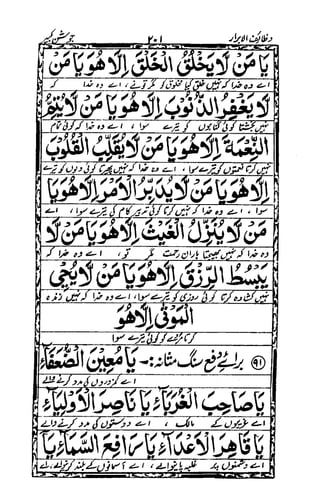 وظائف الابرار ۲۰۱ جوشن کبیر
يَا مَنْ لَا يَخْلُقُ الْخَلْقَ اِلَّا هُوَ يَا مَنْ
اے وہ خدا کہ نہیں خلق کیا مخلوق کو مگر تونے، اے وہ خدا کہ
لَا يَغْفِرُ الذُّنُوْبَ اِلَّا هُوَ يَا مَنْ لَا يُتِمُّ
نہیں بخشتا کوئی گناہوں کو تیرے سوا، اے وہ خدا کہ کوئی تمام
النِّعْمَةَ اِلَّا هُوَ يَا مَنْ لَا يُقَلِّبُ الْقُلُوْبَ
کرتا نعمتوں کو تیرے سوا، اے وہ خدا کہ نہیں پھیرتا کوئی دلوں کو تیرے
اِلَّا هُوَ يَا مَنْ لَا يُدَبِّرُ الْاَمْرَ اِلَّا هُوَ يَا
سوا، اے وہ خدا کہ نہیں کرتا کوئی تدبیر کام کی تیرے سوا، اے
مَنْ لَا يُنَزِّلُ الْغَيْثَ اِلَّا هُوَ يَا مَنْ لَا
وہ خدا کہ نہیں بھیجتا باران رحمت مگر تو، اے وہ خدا کہ
يَبْسُطُ الرِّزْقَ اِلَّا هُوَ يَا مَنْ لَا يُحْيِی
نہیں کشادہ کرتا کوئی روزی کو تیرے سوا، اے وہ خدا کہ نہیں زندہ
الْمَوْتٰى اِلَّا هُوَ
کرتا مردے کو کوئی تیرے سوا
(۹۱) برائے دفع سنگ مثانہ:- يَا مُعِيْنَ الضُّعَفَآءِ
اے کمزوروں کی مدد کرنے والے
يَا صَاحِبَ الْغُرَبَآءِ يَا نَاصِرَ الْاَوْلِيَآءِ
اے غریبوں کے مالک، اے دوستوں کی مدد کرنے والے
يَا قَاهِرَ الْاَعْدَآءِ يَا رَافِعَ السَّمَآءِ يَا
اے دشمنوں پر غلبہ پانیوالے، اے آسمانوں کے بلند کرنیوالے، اے